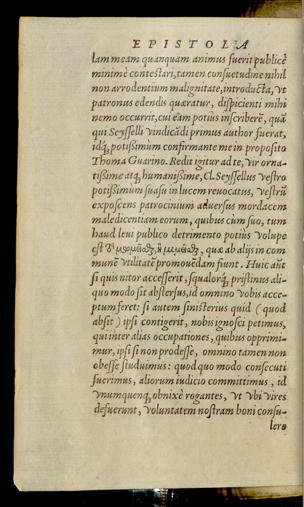 EPISTOLA
lam meam quanquam animus fuerit publicè
minimè contestari, tamen consuetudine nihil
non arrodentium malignitate, introducta, vt
patronus edendis quæratur, dispicienti mihi
nemo occurrit, cui eam potius inscriberē, quā
qui Seysselli vindicādi primus author fuerat,
idq́; potissimùm confirmante me in proposito
Thoma Guarino. Redit igitur ad te, vir orna-
tissime atq́; humanissime, Cl. Seyssellus vestro
potissimùm suasu in lucem reuocatus, vestrū
exposcens patrocinium aduersus mordacem
maledicentiam eorum, quibus cùm suo, tum
haud leui publico detrimento potius volupe
est
quæ ab alijs in com
munē vtilitatē promouēdam fiunt. Huic aūt
si quis nitor accesserit, squalorq́; pristinus ali-
quo modo sit abstersus, id omnino vobis acce-
ptum feret: si autem sinisterius quid (quod
absit) ipsi contigerit, nobis ignosci petimus,
qui inter alias occupationes, quibus opprimi-
mur, ipsi si non prodesse, omnino tamen non
obesse studuimus: quod quo modo consecuti
fuerimus, aliorum iudicio committimus, id
vnumquenq́; obnixè rogantes, vt vbi vires
defuerunt, voluntatem nostram boni consu-
lere